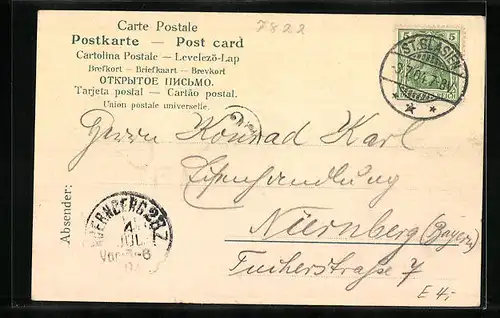 Carte Postale
7822
Postkarte — Post card
Cartolina Postale — Levelező-Lap
Brefkort — Briefkaart — Brevkort
ОТКРЫТОЕ ПИСЬМО.
Tarjeta postal — Cartão postal.
Union postale universelle.
5 5
ST. BLASIEN
7-8 V.
Herrn Konrad Karl
Eisenhandlung
Nürnberg (Bayern)
Tucherstraße 7
Absender:
NUERNBERG 2B7
4
JUL
Vor. 5-6
04
E 4,-